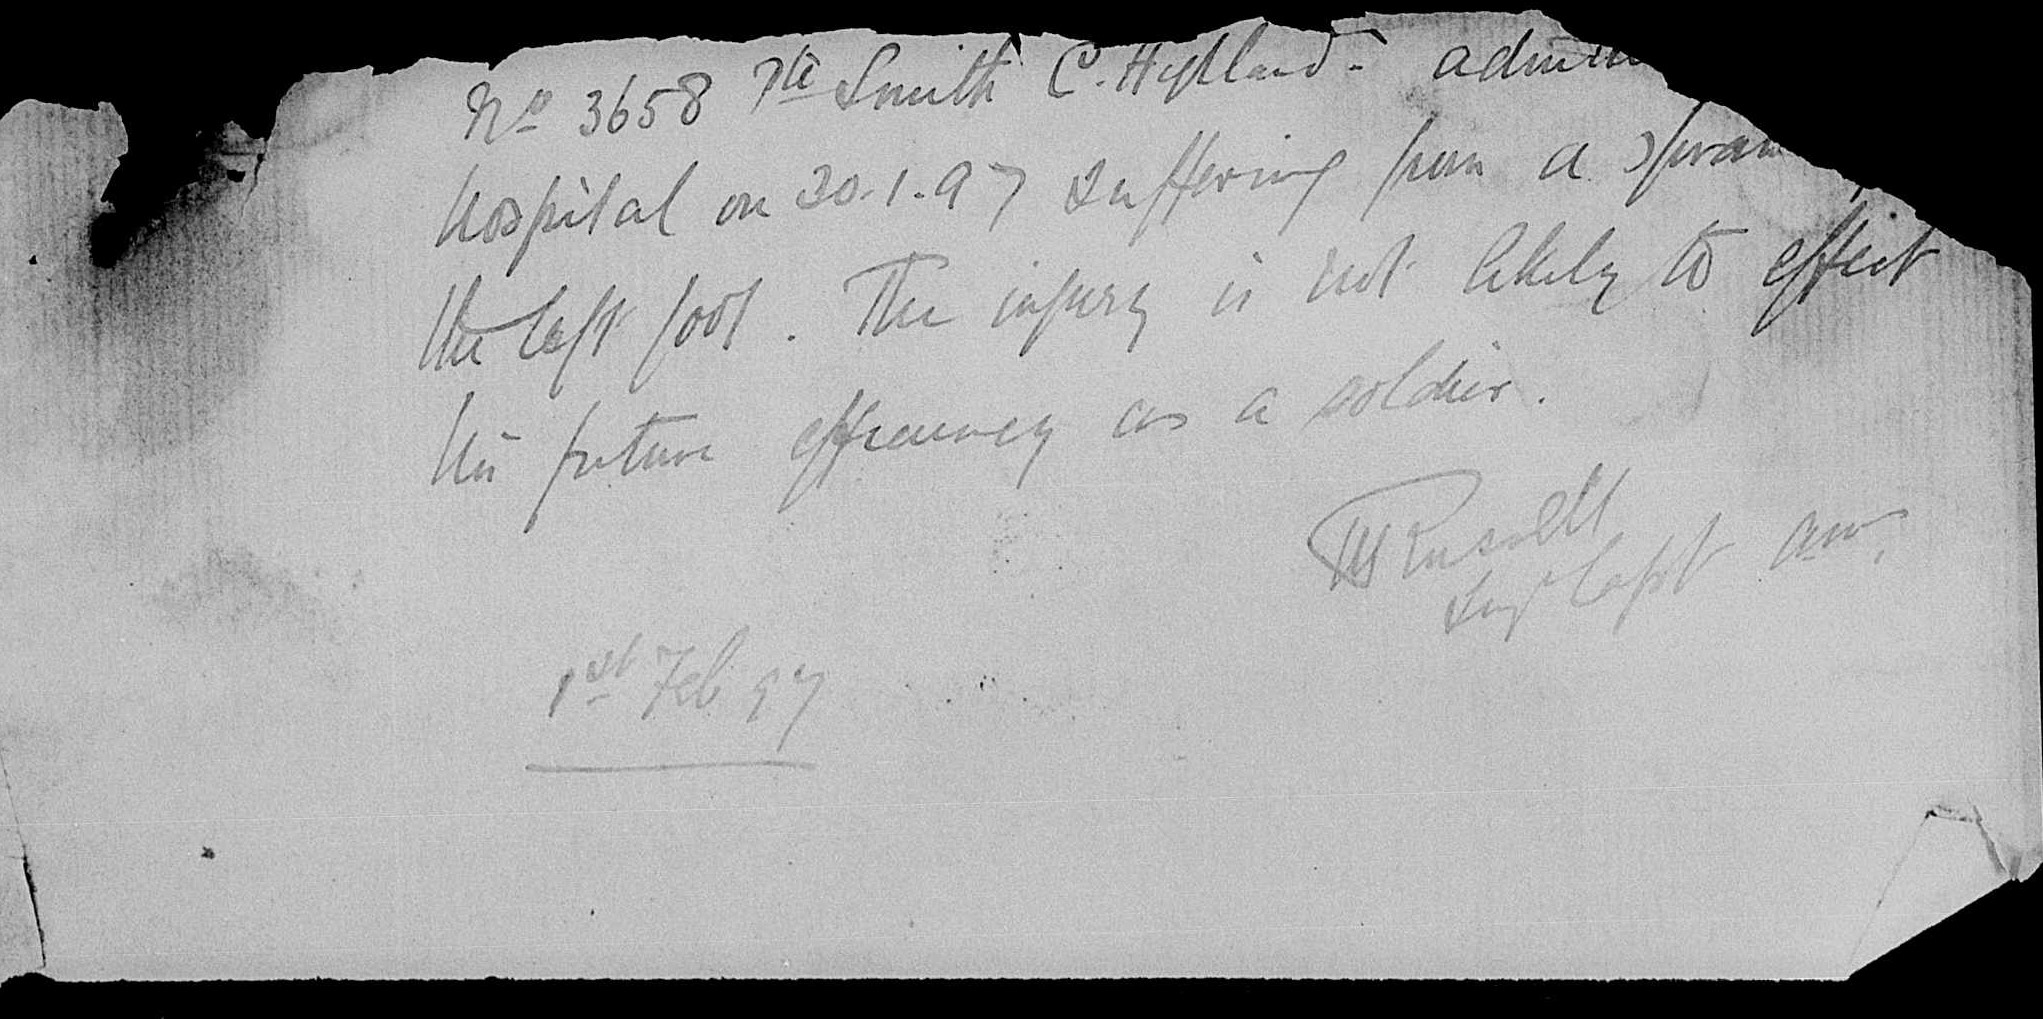 No 3658 Pte Smith C. Highland- admitt
hospital on 30.1.97 suffering from a sprain
the left foot. The injury is not likely to effect
his future efficiency as a soldier.
Russell
Surg Capt
1st Feb 97